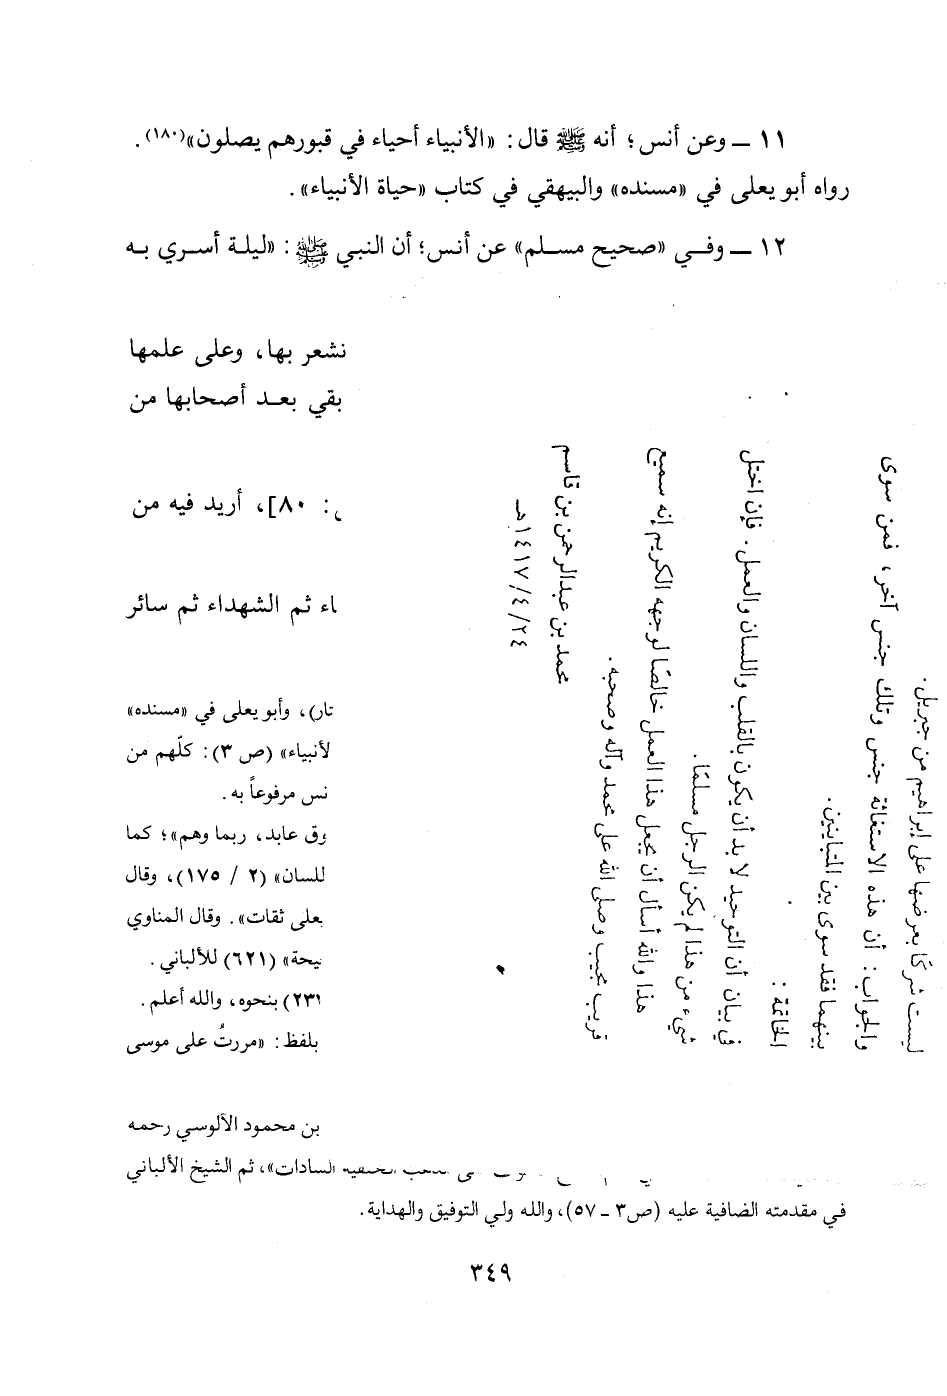 ١١ ــ وعن أنس؛ أنه ﷺ قال: «الأنبياء أحياء في قبورهم يصلون»(١٨٠).
رواه أبو يعلى في «مسنده» والبيهقي في كتاب «حياة الأنبياء».
١٢ ــ وفي «صحيح مسلم» عن أنس؛ أن النبي ﷺ: «ليلة أسري به
نشعر بها، وعلى علمها
بقي بعد أصحابها من
: ٨٠]، أريد فيه من
اء ثم الشهداء ثم سائر
تار)، وأبو يعلى في «مسنده»
لأنبياء» (ص ٣): كلّهم من
نس مرفوعاً به.
وق عابد، ربما وهم»؛ كما
للسان» (٢ / ١٧٥)، وقال
يعلى ثقات». وقال المناوي
يحة» (٦٢١) للألباني.
٢٣١) بنحوه، والله أعلم.
بلفظ: «مررتُ على موسى
بن محمود الآلوسي رحمه
السادات»، ثم الشيخ الألباني
في مقدمته الضافية عليه (ص٣ ـ ٥٧)، والله ولي التوفيق والهداية.
ليست شركًا بعرضها على إبراهيم من جبريل.
والجواب: أن هذه الاستغاثة جنس وتلك جنس آخر، فمن سوى
بينهما فقد سوى بين المتباينين.
الخاتمة:
في بيان أن التوحيد لا بد أن يكون بالقلب واللسان والعمل. فإن اختل
شيء من هذا لم يكن الرجل مسلمًا.
هذا والله أسأل أن يجعل هذا العمل خالصًا لوجهه الكريم إنه سميع
قريب مجيب وصلى الله على محمد وآله وصحبه.
محمد بن عبدالرحمن بن قاسم
٢٤/٤/١٤١٧هـ
٣٤٩